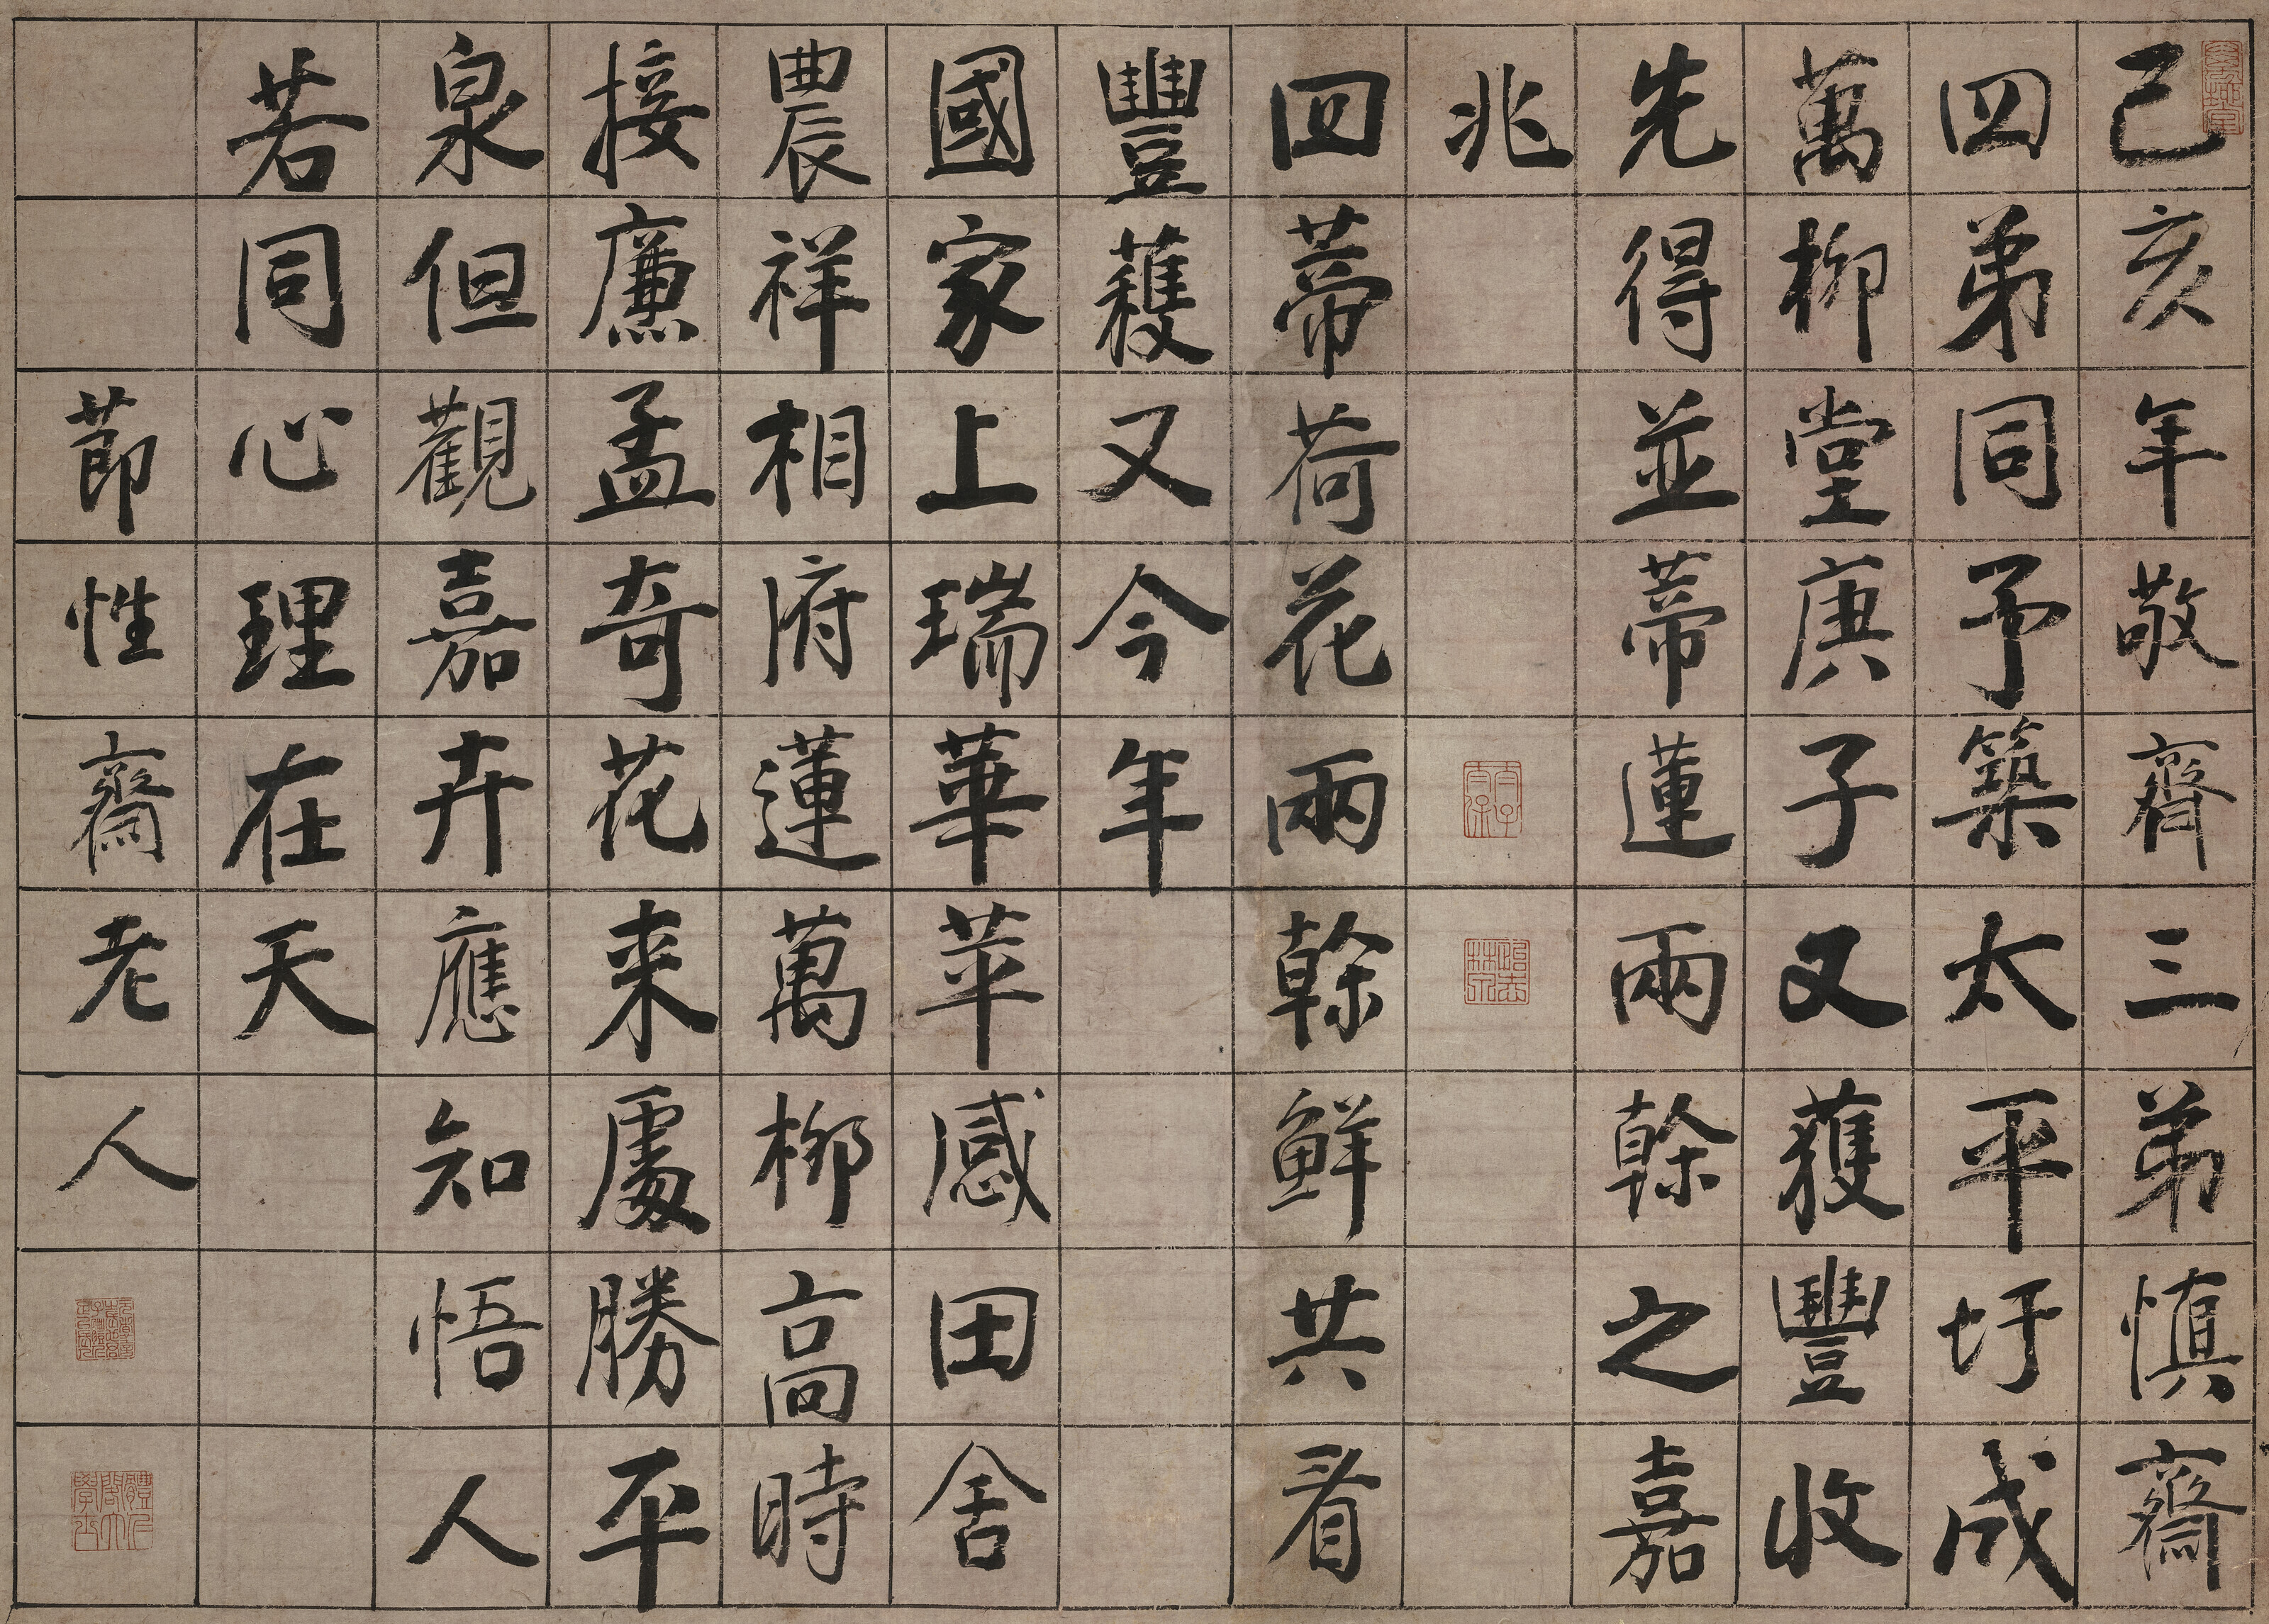 己亥年敬齊三弟慎齋
四弟同予築太平圩成
萬柳堂庚子又獲豐收
先得並蒂蓮兩榦之嘉
兆
四蒂荷花兩榦鮮共看
豐穫又今年
國家上瑞華苹感田舍
農祥相府蓮萬柳高時
接廉孟奇花来處勝平
泉但觀嘉卉應知悟人
若同心理在天
節性齋老人